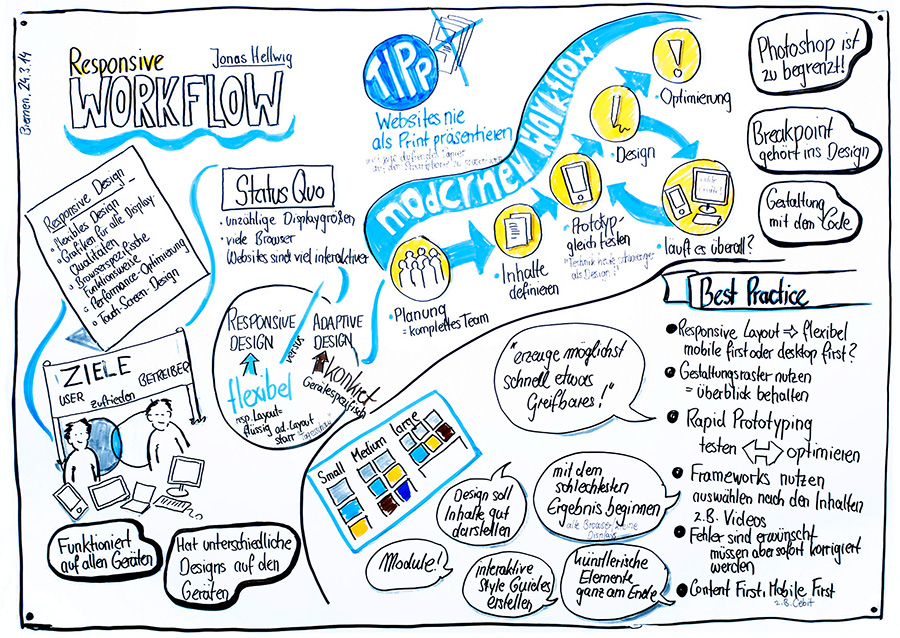 Bremen, 24.3.14
Responsive
Jonas Hellwig
WORKFLOW
Responsive Design
• flexibles Design
• Grafiken für alle Display
Qualitäten
• Browserspezifische
Funktionsweise
• Performance-Optimierung
• Touch-Screen-Design
Status Quo
• unzählige Displaygrößen
• viele Browser
Websites sind viel interaktiver
TIPP
Websites nie
als Print präsentieren
moderner WORKFLOW
• Planung
= komplettes Team
• Inhalte
definieren
• Prototyp-
gleich testen
als Design!
• Design
• Optimierung
läuft es überall?
Photoshop ist
zu begrenzt!
Breakpoint
gehört ins Design
Gestaltung
mit dem Code
ZIELE
USER
zufrieden
BETREIBER
Funktioniert
auf allen Geräten
Hat unterschiedliche
Designs auf den
Geräten
RESPONSIVE
DESIGN
versus
ADAPTIVE
DESIGN
flexibel
konkret
Gerätespezifisch
rsp. Layout=
flüssig
ad. Layout
starr
"erzeuge möglichst
schnell etwas
Greifbares!"
Small
Medium
large
Design soll
Inhalte gut
darstellen
mit dem
schlechtesten
Ergebnis beginnen
Displays
Module!
interaktive
Style Guides
erstellen
künstlerische
Elemente
ganz am Ende
Best Practice
Responsive Layout ⇒ flexibel
mobile first oder desktop first?
Gestaltungsraster nutzen
= überblick behalten
Rapid Prototyping
testen ⇔ optimieren
Frameworks nutzen
auswählen nach den Inhalten
z.B. Videos
Fehler sind erwünscht
müssen aber sofort korrigiert
werden
Content First, Mobile First
z.B. Cebit